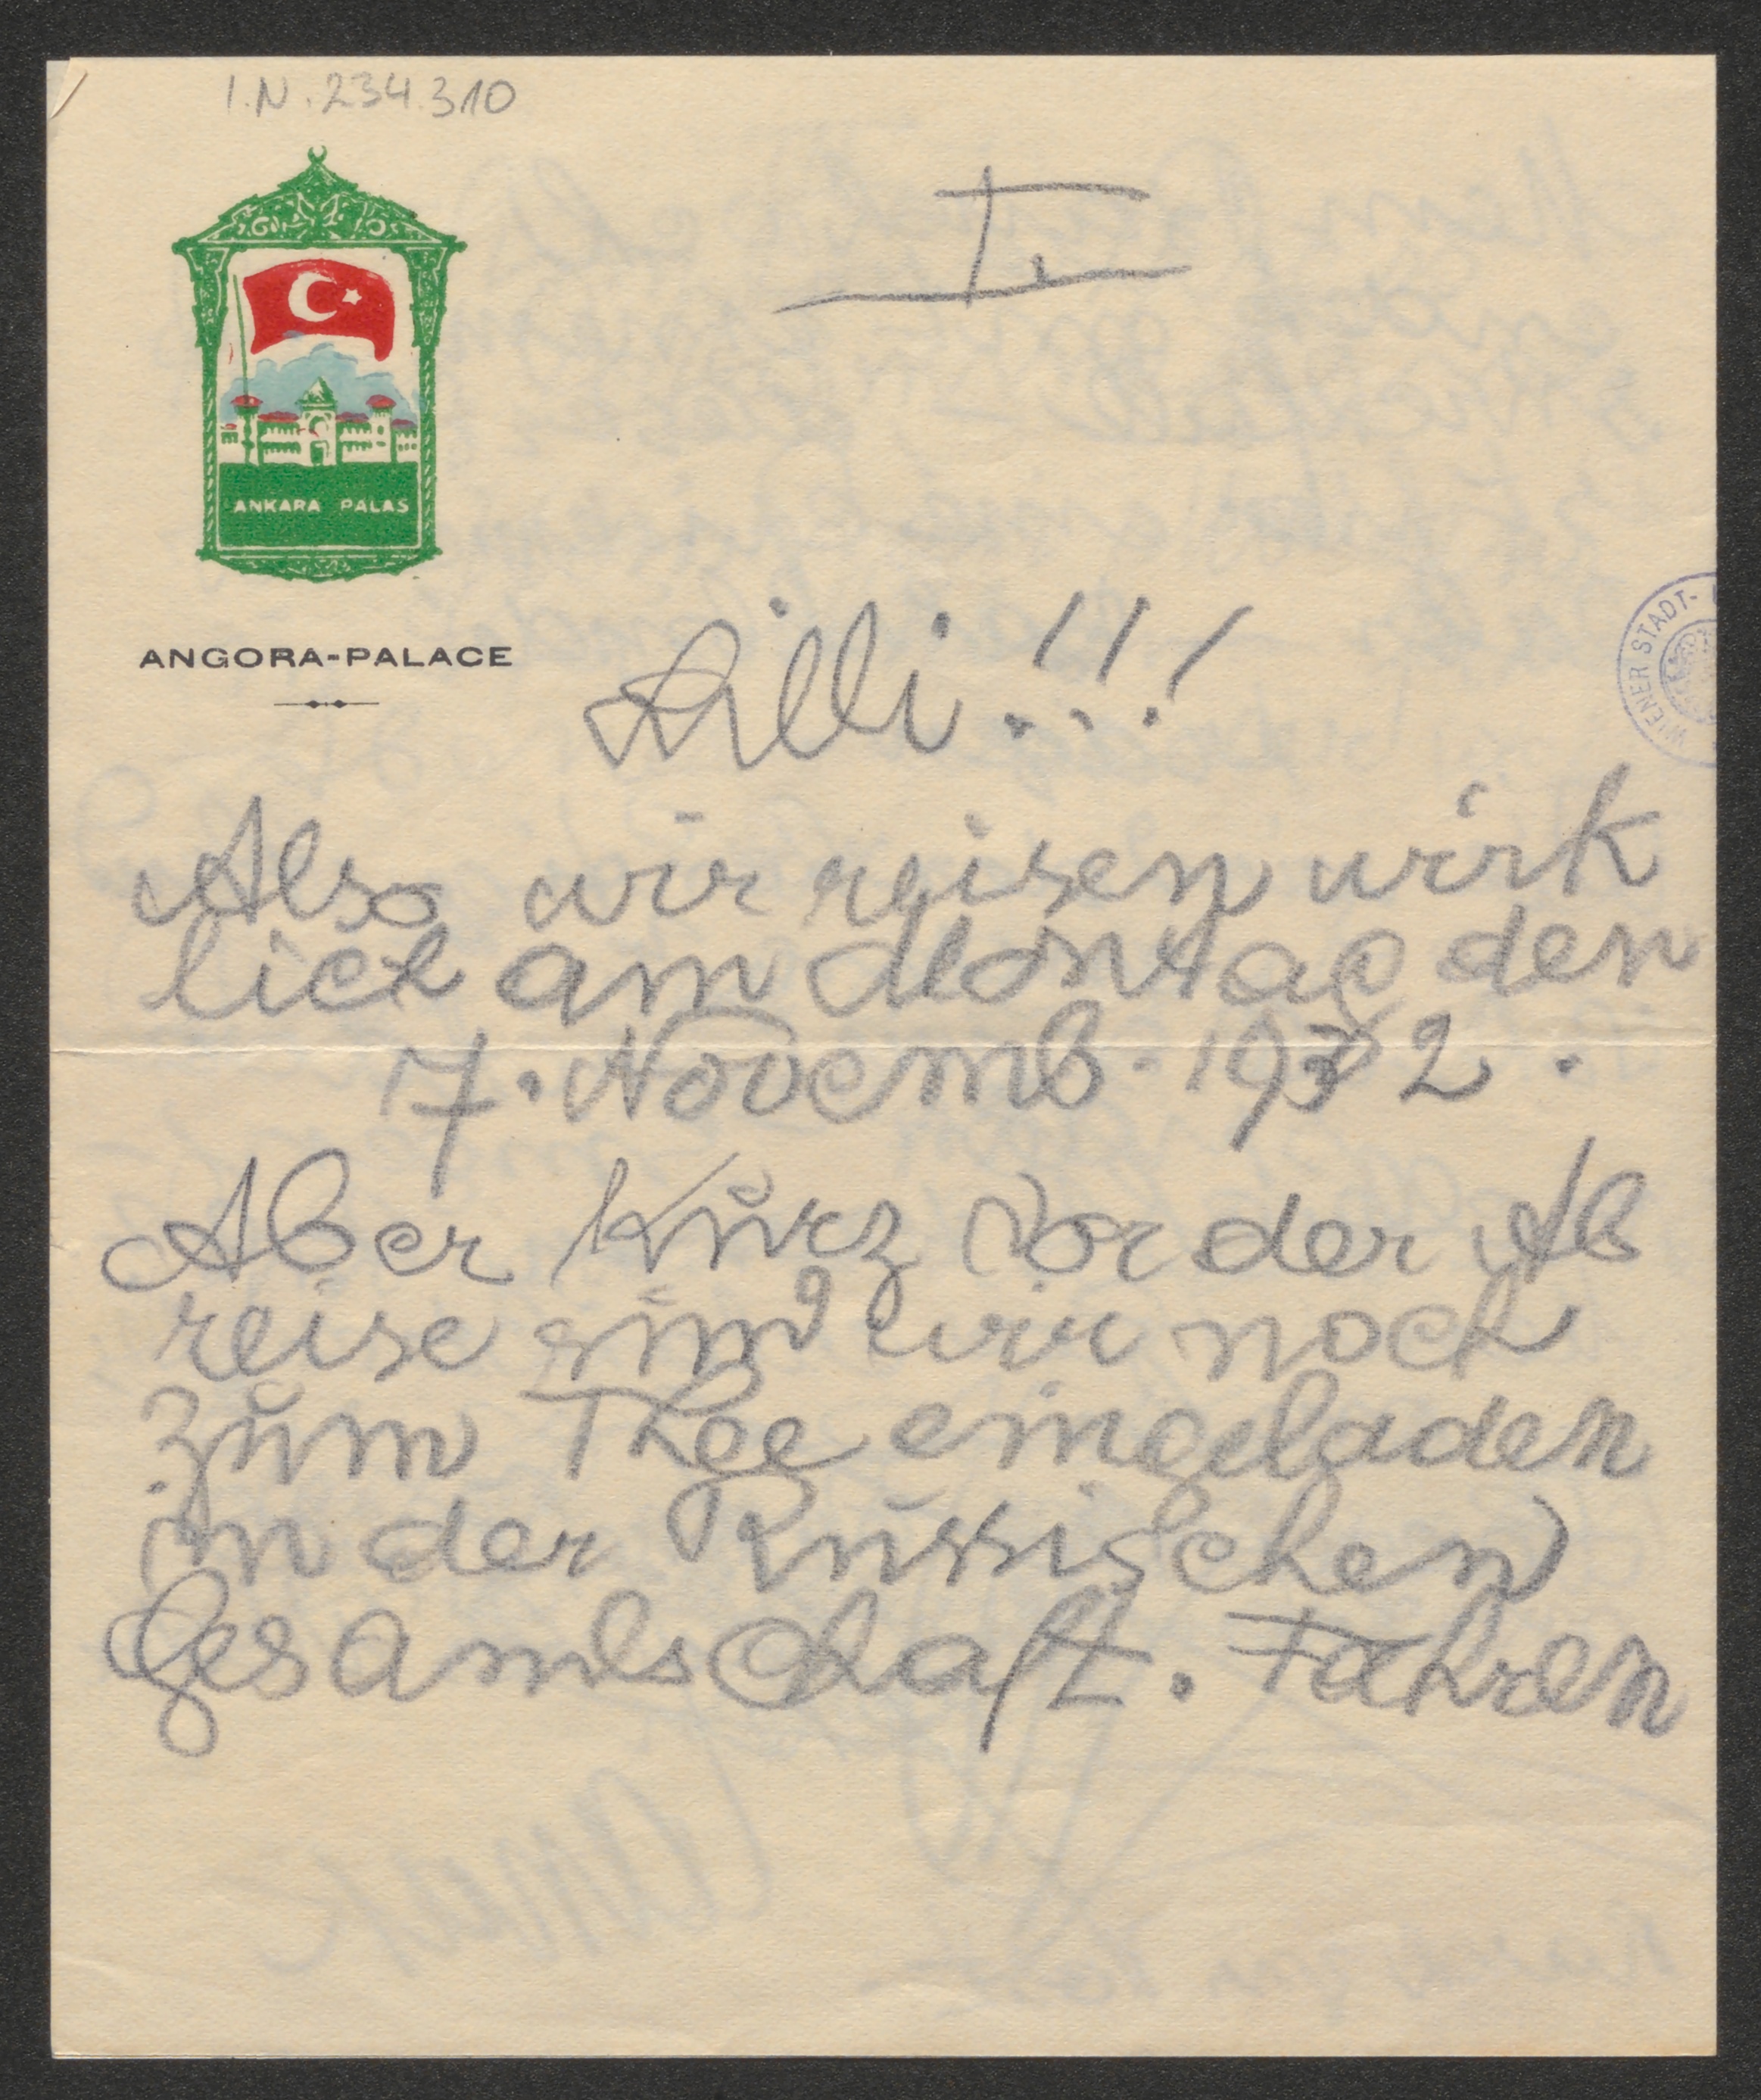 I.N.234.310
I.
ANKARA PALAS
ANGORA-PALACE
WIENER STADT-
Lilli!!!
Also wir reisen wirk
lich am Montag den
7. Novemb. 1932.
Aber kurz vor der Ab
reise sind wir noch
zum Thee eingeladen
in der Russischen
Gesamtschaft. Fahren